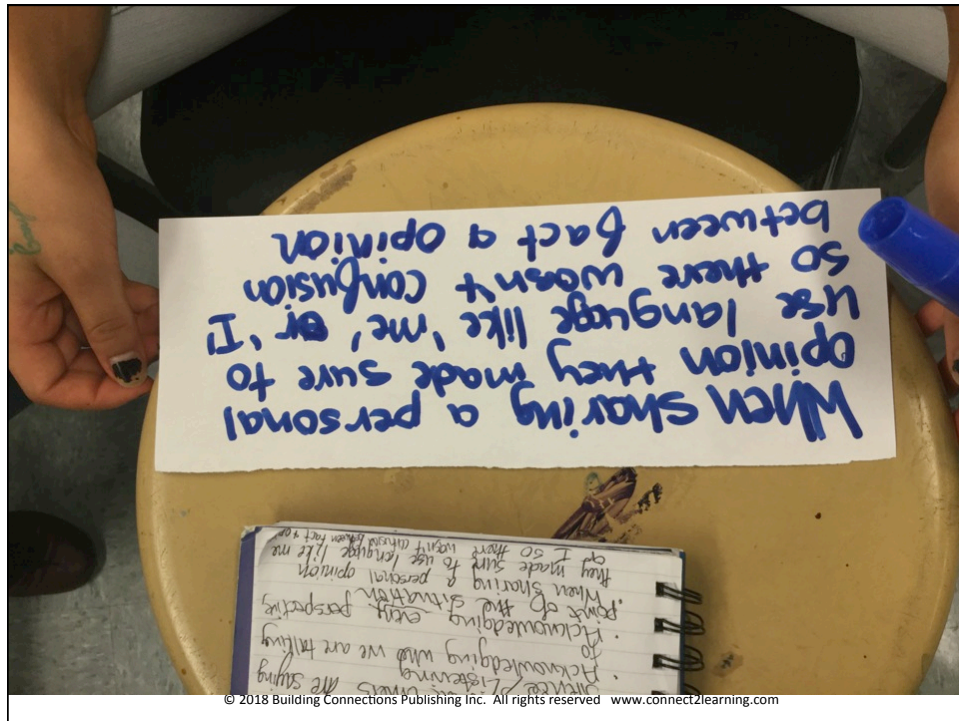 When sharing a personal
opinion they made sure to
use language like 'me' or 'I'
so there wasn't confusion
between fact & opinion
Silence/Listening
others are saying
· Acknowledging who we are talking
to
· Acknowledging every perspective
point of the situation
· When sharing a personal opinion
they made sure to use language like me
or I so there wasn't between fact &
© 2018 Building Connections Publishing Inc. All rights reserved www.connect2learning.com